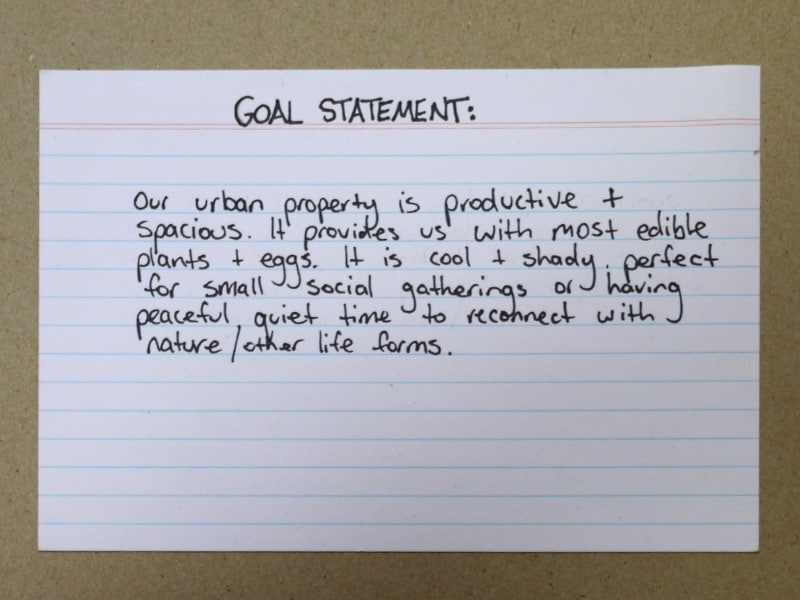 GOAL STATEMENT:
Our urban property is productive +
spacious. It provides us with most edible
plants + eggs. It is cool + shady, perfect
for small social gatherings or having
peaceful quiet time to reconnect with
nature/other life forms.